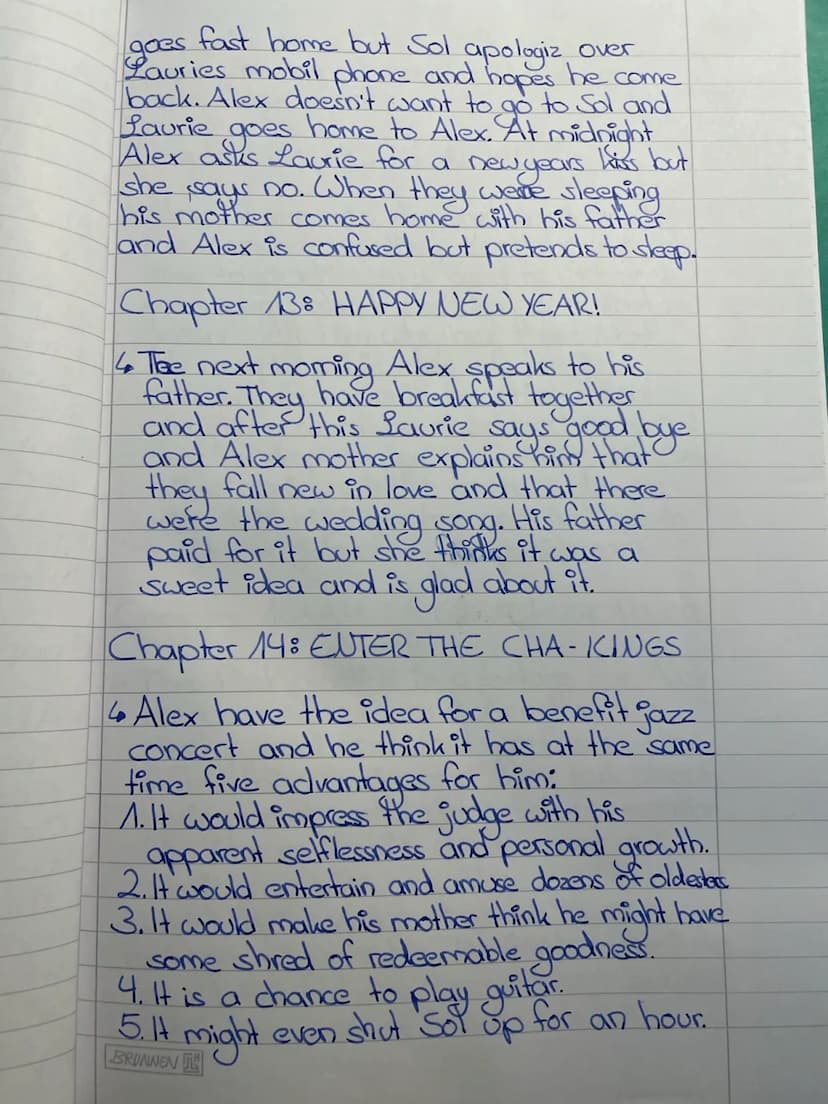 goes fast home but Sol apologiz over
Lauries mobil phone and hopes he come
back. Alex doesn't want to go to Sol and
Laurie goes home to Alex. At midnight
Alex asks Laurie for a newyears kiss but
she says no. When they were sleeping
his mother comes home with his father
and Alex is confused but pretends to sleep.
Chapter 13: HAPPY NEW YEAR!
↳ The next morning Alex speaks to his
father. They have breakfast together
and after this Laurie says good bye
and Alex mother explains him that
they fall new in love and that there
were the wedding song. His father
paid for it but she thinks it was a
sweet idea and is glad about it.
Chapter 14: ENTER THE CHA-KINGS
↳ Alex have the idea for a benefit jazz
concert and he think it has at the same
time five advantages for him:
1. It would impress the judge with his
apparent selflessness and personal growth.
2. It would entertain and amuse dozens of oldesters
3. It would make his mother think he might have
some shred of redeemable goodness.
4. It is a chance to play guitar.
5. It might even shut Sol up for an hour.
BRUNNEN